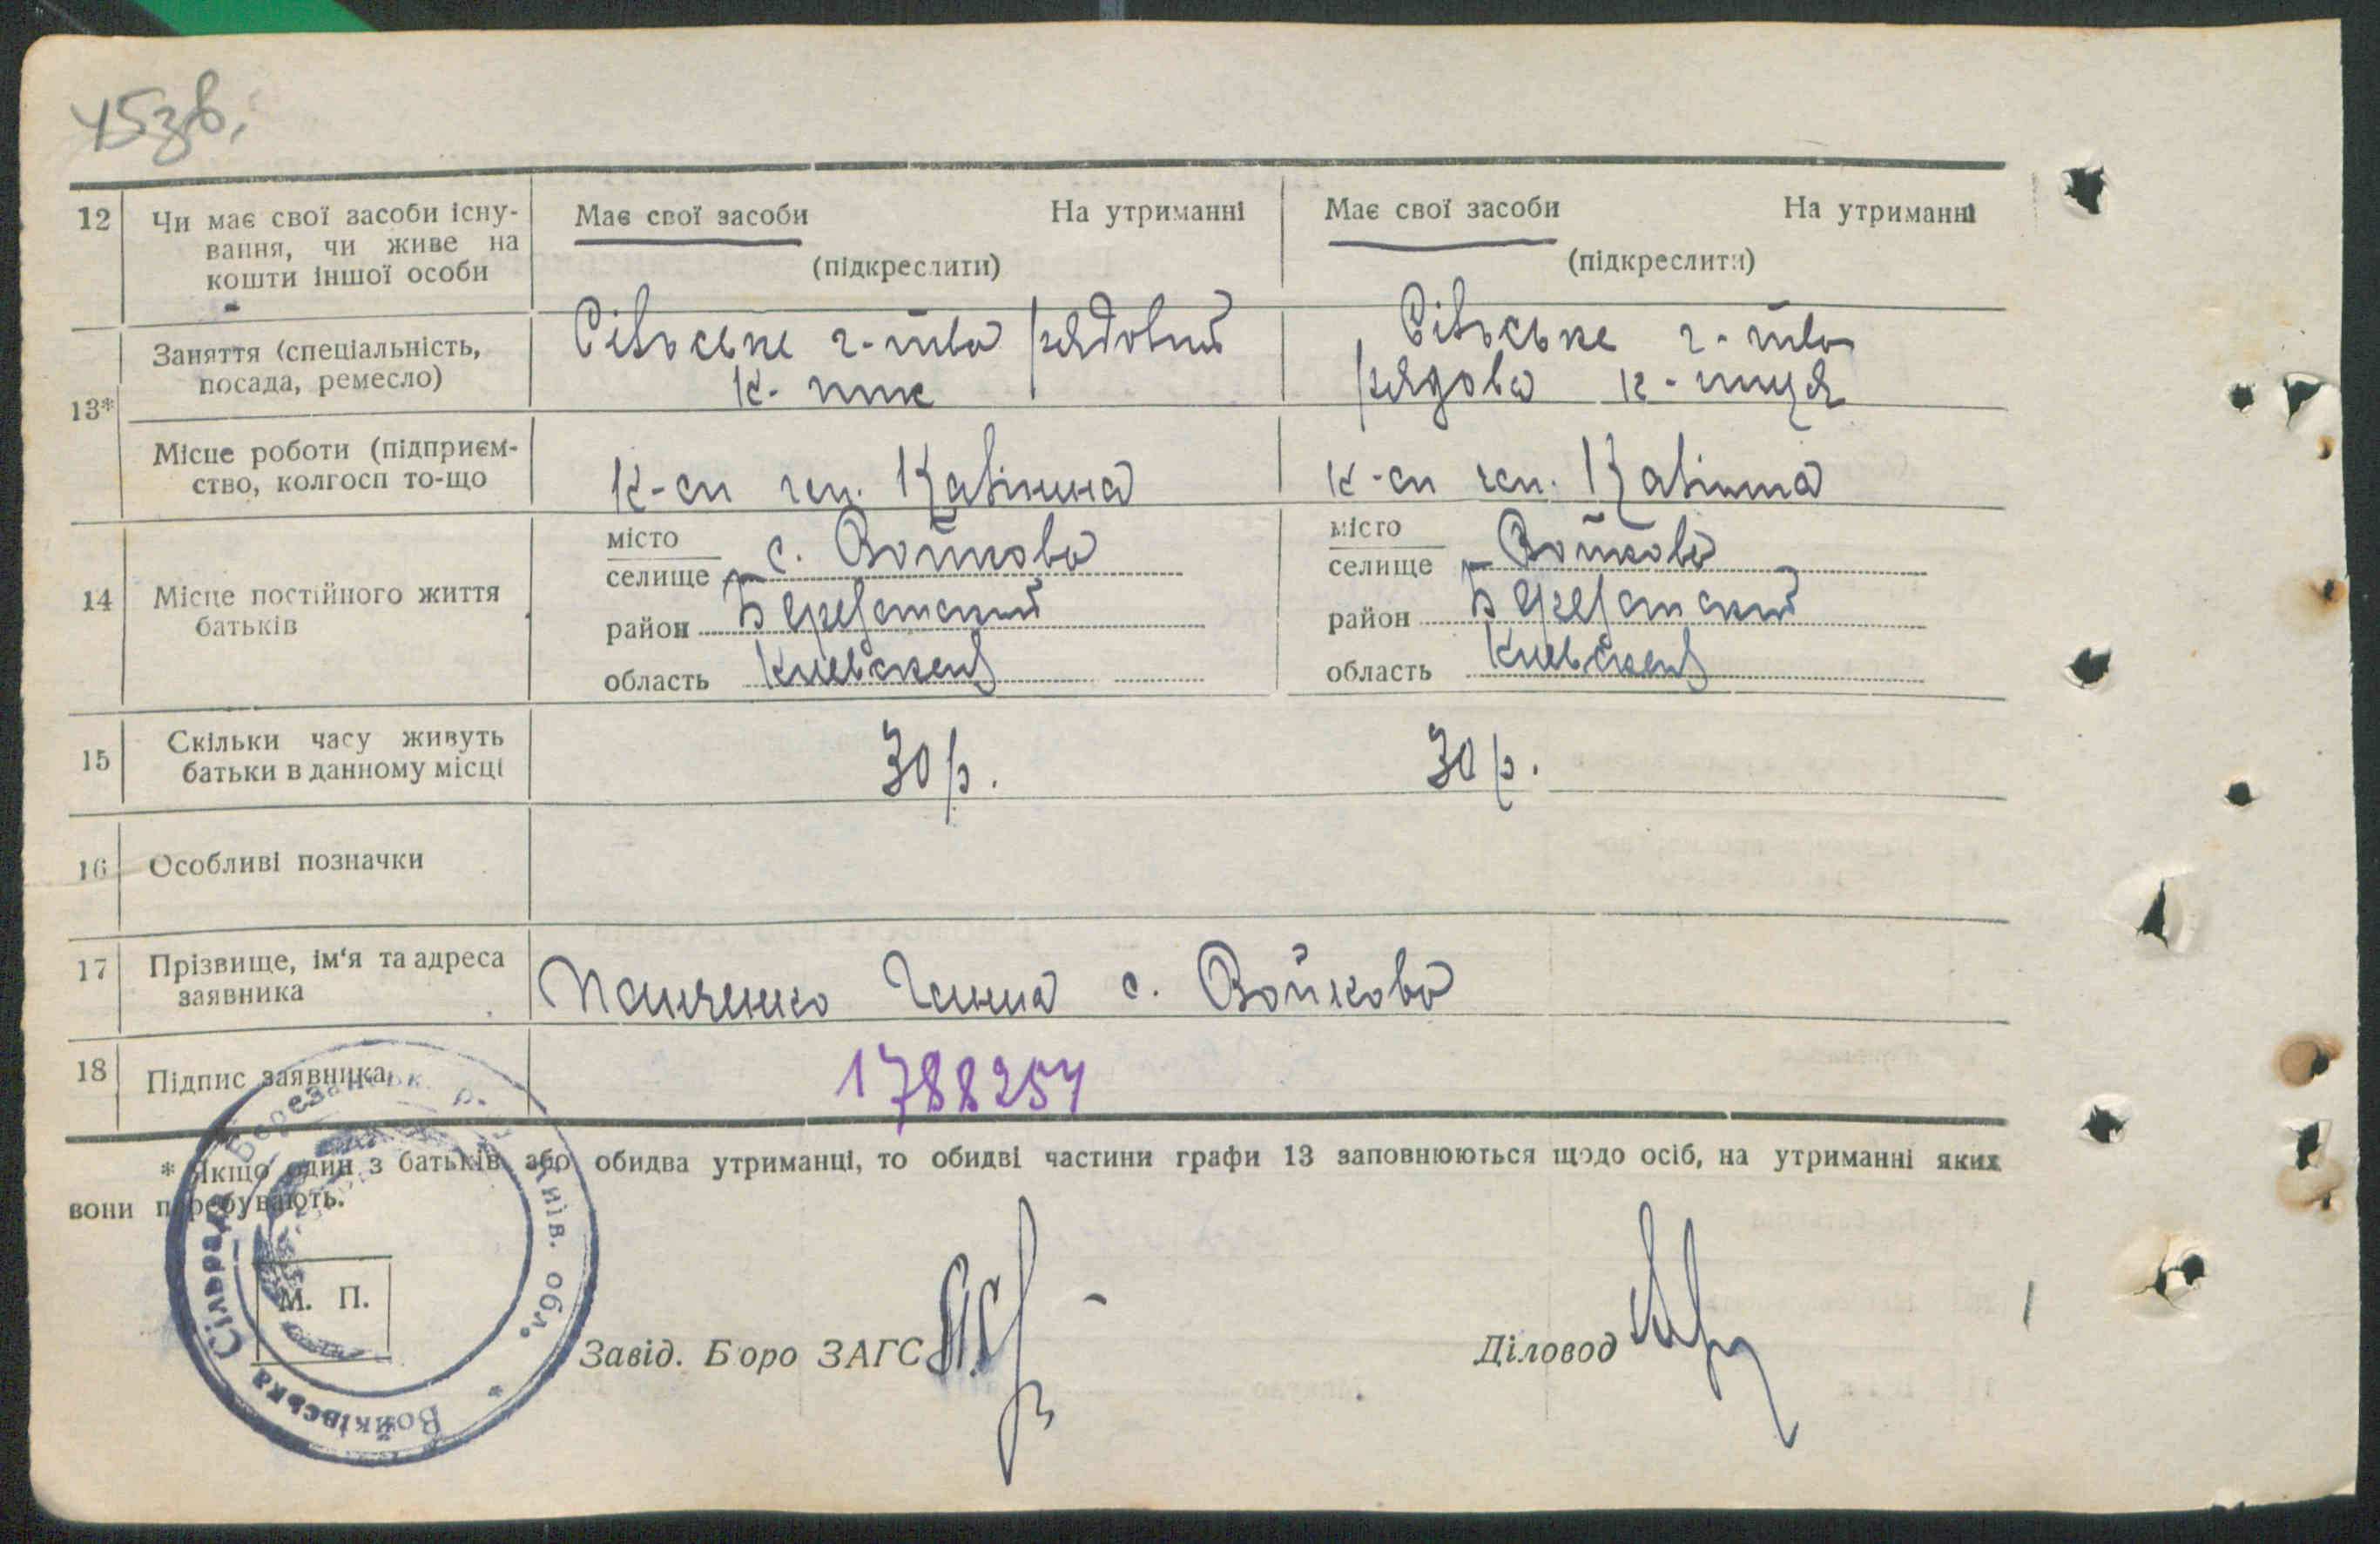 45зв.
12 Чи має свої засоби існу- Має свої засоби На утриманні Має свої засоби На утриманні
вання, чи живе на
кошти іншої особи (підкреслити) (підкреслити)
13* Заняття (спеціальність, Сільське г-тво рядовий Сільське г-тво
посада, ремесло) к-ник рядова к-ниця
Місце роботи (підприєм-
ство, колгосп то-що к-сп ім. Калініна к-сп ім. Калініна
14 Місце постійного життя
батьків
місто
селище с. Войкова
район Березанский
область Киевская
місто
селище Войкова
район Березанский
область Киевская
15 Скільки часу живуть
батьки в данному місці 30 р. 30 р.
16 Особливі позначки
17 Прізвище, ім'я та адреса
заявника Панченко Ганна с. Войкова
18 Підпис заявника 1788257
* Якщо один з батьків або обидва утриманці, то обидві частини графи 13 заповнюються щодо осіб, на утриманні яких
вони перебувають.
М. П.
Войківська Сільрада Березанськ. р. Київ. обл. *
Завід. Бюро ЗАГС Діловод